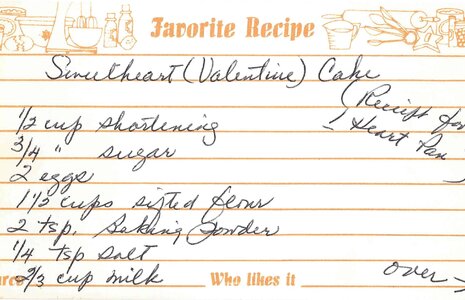 Favorite Recipe
Sweetheart (Valentine) Cake
(Receipt for
Heart Pan)
1/2 cup shortening
3/4 " sugar
2 eggs
1 1/2 cups sifted flour
2 tsp. Baking Powder
1/4 tsp salt
2/3 cup milk
over
Who likes it